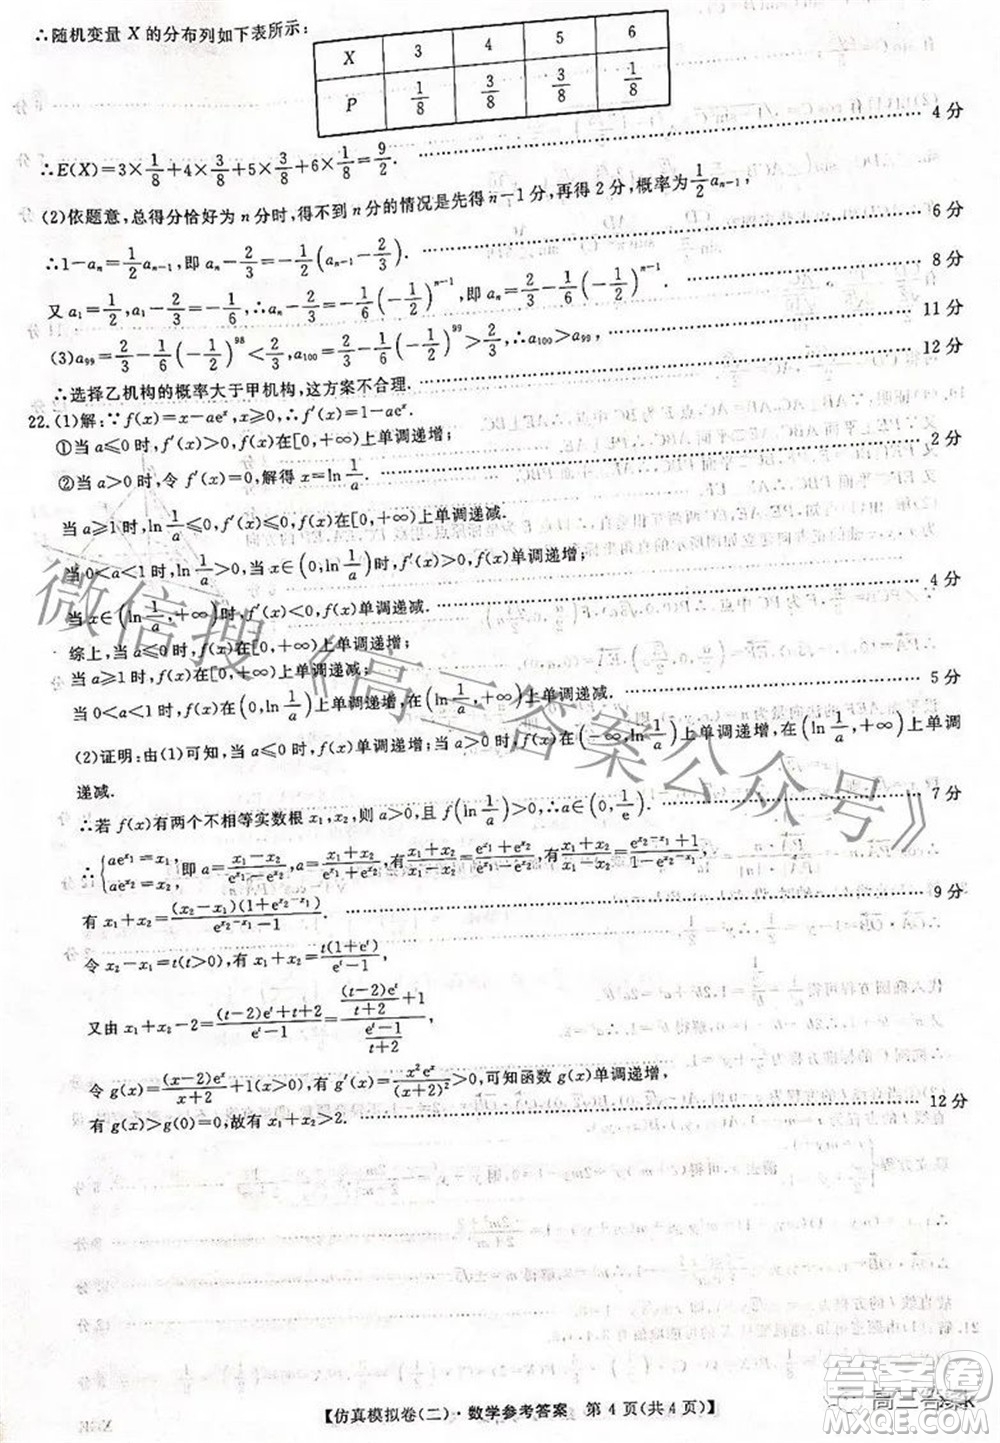 ∴随机变量 X 的分布列如下表所示：
X 3 4 5 6
P 1/8 3/8 3/8 1/8
∴E(X)=3×1/8+4×3/8+5×3/8+6×1/8=9/2. 4 分
(2)依题意,总得分恰好为 n 分时,得不到 n 分的情况是先得 n-1 分,再得 2 分,概率为 1/2 a_{n-1},
∴1-a_n=1/2 a_{n-1},即 a_n-2/3=-1/2(a_{n-1}-2/3). 6 分
又 a_1=1/2,a_1-2/3=-1/6,∴a_n-2/3=-1/6(-1/2)^{n-1},即 a_n=2/3-1/6(-1/2)^{n-1}. 8 分
(3)a_{99}=2/3-1/6(-1/2)^{98}<2/3,a_{100}=2/3-1/6(-1/2)^{99}>2/3,∴a_{100}>a_{99}, 11 分
∴选择乙机构的概率大于甲机构,这方案不合理. 12 分
22.(1)解:∵f(x)=x-ae^x,x≥0,∴f′(x)=1-ae^x.
①当 a≤0 时,f′(x)>0,f(x)在[0,+∞)上单调递增; 2 分
②当 a>0 时,令 f′(x)=0,解得 x=ln 1/a.
当 a≥1 时,ln 1/a≤0,f′(x)<0,f(x)在[0,+∞)上单调递减.
当 0<a<1 时,ln 1/a>0,当 x∈(0,ln 1/a)时,f′(x)>0,f(x)单调递增;
当 x∈(ln 1/a,+∞)时,f′(x)<0,f(x)单调递减. 4 分
综上,当 a≤0 时,f(x)在[0,+∞)上单调递增;
当 a≥1 时,f(x)在[0,+∞)上单调递减;
当 0<a<1 时,f(x)在(0,ln 1/a)上单调递增,在(ln 1/a,+∞)上单调递减. 5 分
(2)证明:由(1)可知,当 a≤0 时,f(x)单调递增;当 a>0 时,f(x)在(-∞,ln 1/a)上单调递增,在(ln 1/a,+∞)上单调
递减. 7 分
∴若 f(x)有两个不相等实数根 x_1,x_2,则 a>0,且 f(ln 1/a)>0,∴a∈(0,1/e).
∴{ae^{x_1}=x_1, ae^{x_2}=x_2,即 a=(x_1-x_2)/(e^{x_1}-e^{x_2}),a=(x_1+x_2)/(e^{x_1}+e^{x_2}),有(x_1+x_2)/(x_1-x_2)=(e^{x_1}+e^{x_2})/(e^{x_1}-e^{x_2}),有(x_1+x_2)/(x_1-x_2)=(e^{x_2-x_1}+1)/(1-e^{x_2-x_1}),
有 x_1+x_2=(x_2-x_1)(1+e^{x_2-x_1})/(e^{x_2-x_1}-1). 9 分
令 x_2-x_1=t(t>0),有 x_1+x_2=t(1+e^t)/(e^t-1),
又由 x_1+x_2-2=((t-2)e^t+t+2)/(e^t-1)=((t-2)e^t/(t+2)+1)/((e^t-1)/(t+2)),
令 g(x)=(x-2)e^x/(x+2)+1(x>0),有 g′(x)=x^2e^x/(x+2)^2>0,可知函数 g(x)单调递增,
有 g(x)>g(0)=0,故有 x_1+x_2>2. 12 分
【仿真模拟卷(二)·数学参考答案 第 4 页(共 4 页)】
微信搜《高三答案公众号》
答案圈
高三答案